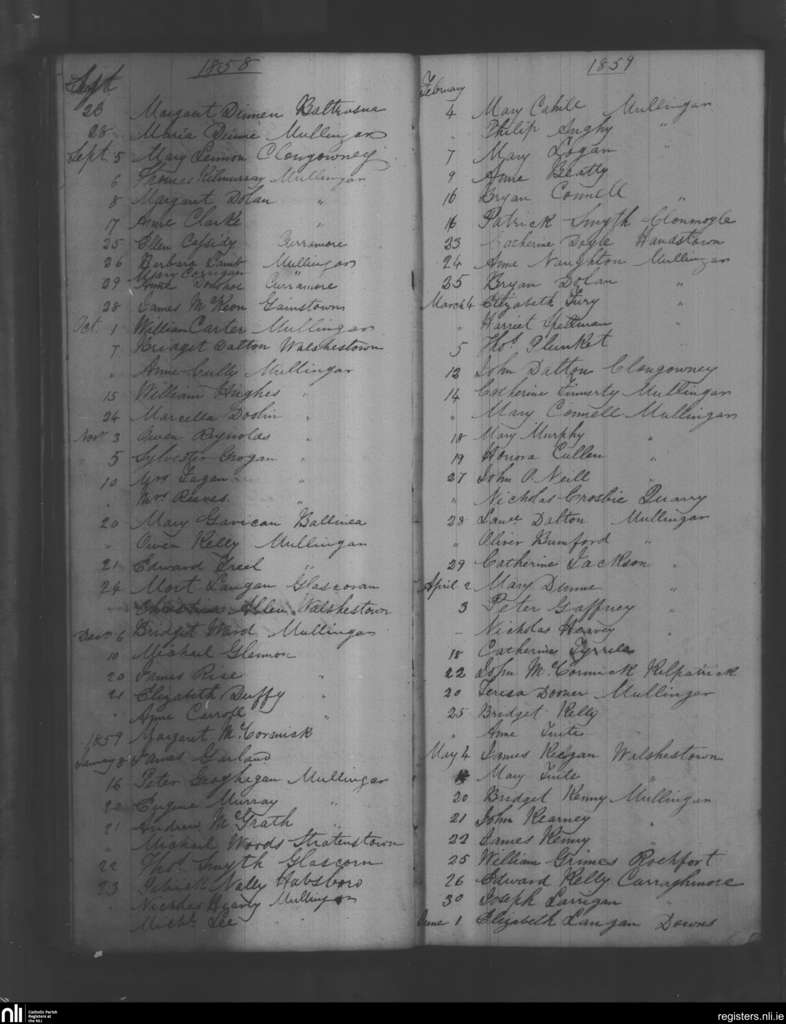 1858
Sept
23 Margaret Dinnen Baltrasna
28 Maria Dinne Mullingar
Sept 5 Mary Lennon Clougowney
6 Thomas Kilmurray Mullingar
8 Margaret Dolan "
17 Anne Clarke "
25 Ellen Cassidy Curramore
26 Barbara Mullingar
Mary Corrigan "
29 Anne Curramore
28 James McKeon Gainstown
Oct. 1 William Carter Mullingar
7 Bridget Dalton Walshestown
" Anne Mullingar
15 William Hughes "
24 Marcella Doolin "
Nov 3 Owen Reynolds "
5 Sylvester Grogan "
10 Mrs Fagan "
" Mrs Reeves "
20 Mary Gavican Ballinea
" Owen Kelly Mullingar
21 Edward Freel "
24 Mort Langan Glascorn
Allen Walshestown
Decr 6 Bridget Ward Mullingar
10 Michael Glennon
20 James Rise "
21 Elizabeth Duffy "
" Anne Carroll "
1859 Margaret McCormick
January 8 James Garland
16 Peter Geoghegan Mullingar
20 Eugene Murray "
21 Andrew McGrath "
" Michael Woods Stratenstown
22 Thos Smyth Glascorn
23 Patrick Nally Habsboro
" Nicholas Hearty Mullingar
Michl Lee
1859
February
4 Mary Cahill Mullingar
" Philip Inghy "
7 Mary Logan "
9 Anne Beatty
16 Bryan Connell "
16 Patrick Smyth Clonmoyle
23 Catherine Doyle Handstown
24 Anne Naughton Mullingar
25 Bryan Dolan "
March 4 Elizabeth Fury "
" Harriet Spellman "
5 Thos Plunket
12 John Dalton Clougowney
14 Catherine Finnerty Mullingar
" Mary Connell Mullingar
18 Mary Murphy "
19 Honora Cullen "
27 John O Neill "
" Nicholas Crosbie Quarry
28 Dalton Mullingar
" Oliver Bumford "
29 Catherine Jackson "
April 2 Mary Dunne "
3 Peter Gaffney "
Nicholas Harvey "
18 Catherine Tyrrell
22 John McCormick Kilpatrick
20 Teresa Doomer Mullingar
25 Bridget Kelly
" Anne Tuite "
May 4 James Keegan Walshestown
Mary Tuite "
20 Bridget Kenny Mullingar
21 John Kearney "
22 James Kenny
25 William Grimes Rochfort
26 Edward Kelly Curraghmore
30 Joseph Larrigan "
June 1 Elizabeth Langan Downs
nli
Catholic Parish
Registers at
the NLI
registers.nli.ie